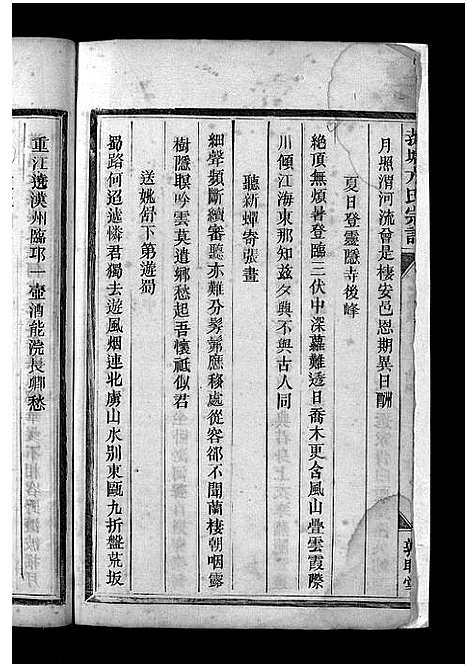 月照渭河流曾是棲安邑恩期異日酬
夏日登靈隱寺後峰
絶頂無煩暑登臨三伏中深蘿難透日喬木更含風山疊雲霞際
川傾江海東那知茲夕興不與古人同
聽新蟬寄張晝
細聲頻斷續審聽亦難分髣髴應移處從容卻不聞蘭棲朝咽露
樹隱暝吟雲莫遣鄉愁起吾懷祗似君
送姚舒下第遊蜀
蜀路何迢遞憐君獨去遊風烟連北虜山水別東甌九折盤荒坂
重江遶漢州臨邛一壺酒能澆長卿愁